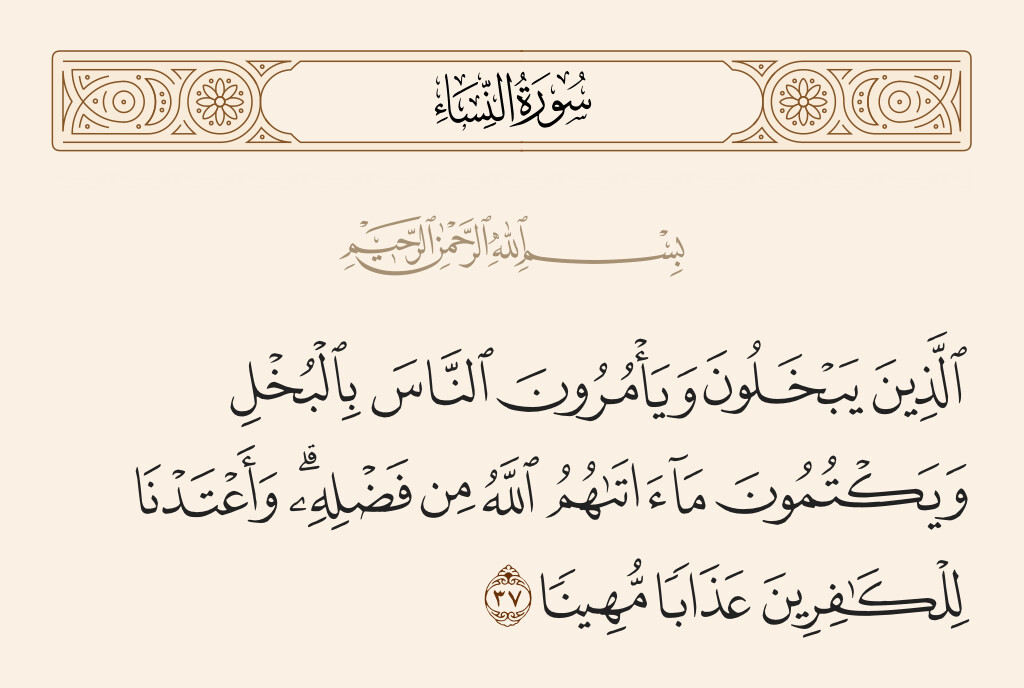 سُورَةُ النِّسَاءِ
بِسْمِ ٱللَّهِ ٱلرَّحْمَٰنِ ٱلرَّحِيمِ
ٱلَّذِينَ يَبْخَلُونَ وَيَأْمُرُونَ ٱلنَّاسَ بِٱلْبُخْلِ
وَيَكْتُمُونَ مَآ ءَاتَىٰهُمُ ٱللَّهُ مِن فَضْلِهِۦ ۗ وَأَعْتَدْنَا
لِلْكَٰفِرِينَ عَذَابًا مُّهِينًا ٣٧